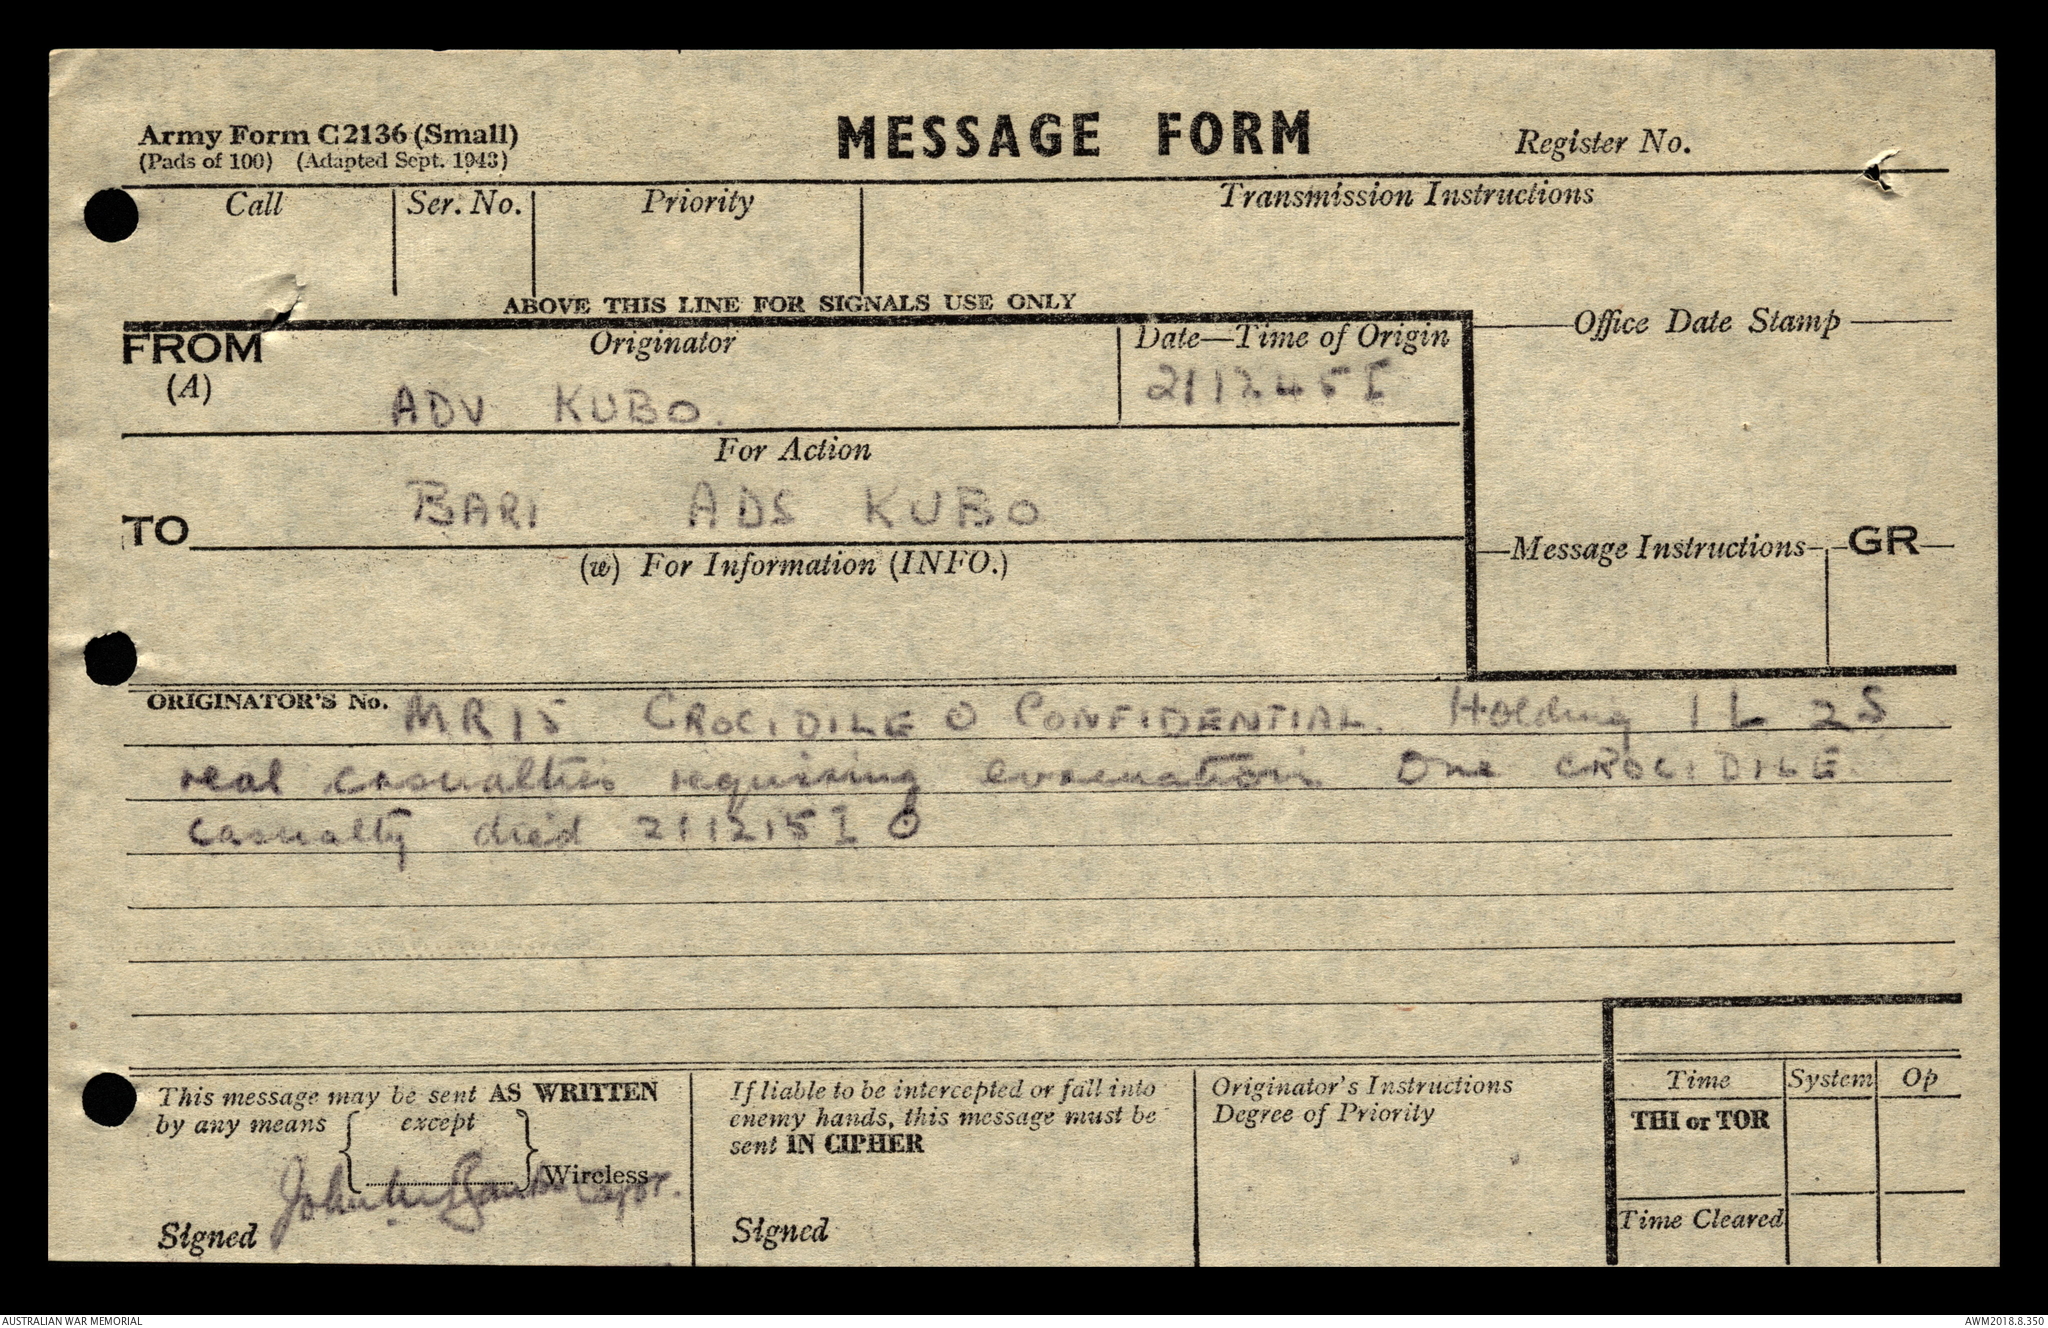 Army Form C2136 (Small)
(Pads of 100) (Adapted Sept. 1943)
MESSAGE FORM
Register No.
Call
Ser. No.
Priority
Transmission Instructions
ABOVE THIS LINE FOR SIGNALS USE ONLY
FROM
(A)
Originator
Date—Time of Origin
Office Date Stamp
ADV KUBO.
211245 I
For Action
TO
BARI ADS KUBO
(w) For Information (INFO.)
Message Instructions
GR
ORIGINATOR'S No.
MR15 CROCIDILE O CONFIDENTIAL. Holding 1 L 2S
real casualties requiring evacuation. One CROCIDILE
casualty died 211215 I O
This message may be sent AS WRITTEN
by any means { except } Wireless
Signed
John Capt.
If liable to be intercepted or fall into
enemy hands, this message must be
sent IN CIPHER
Signed
Originator's Instructions
Degree of Priority
Time
System
Op
THI or TOR
Time Cleared
AUSTRALIAN WAR MEMORIAL
AWM2018.8.350